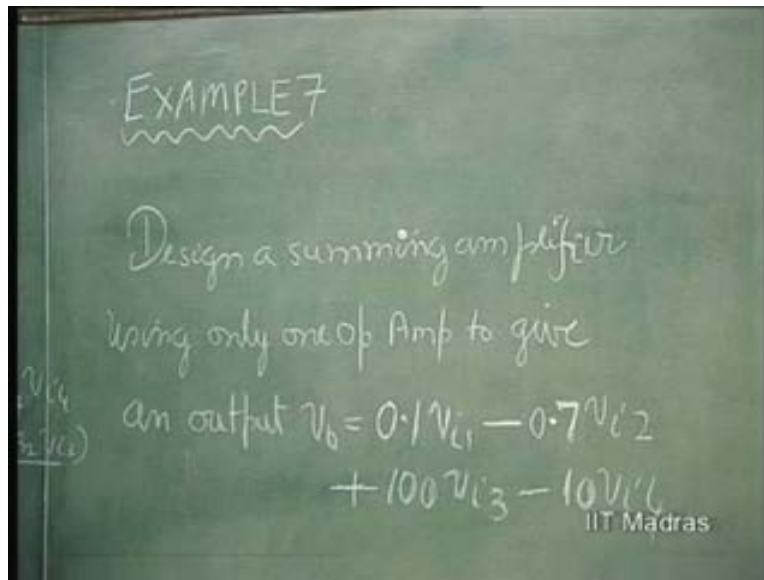 EXAMPLE 7
Design a summing amplifier
using only one Op Amp to give
an output V₀ = 0.1Vi₁ − 0.7Vi2
+ 100Vi₃ − 10Vi4
IIT Madras